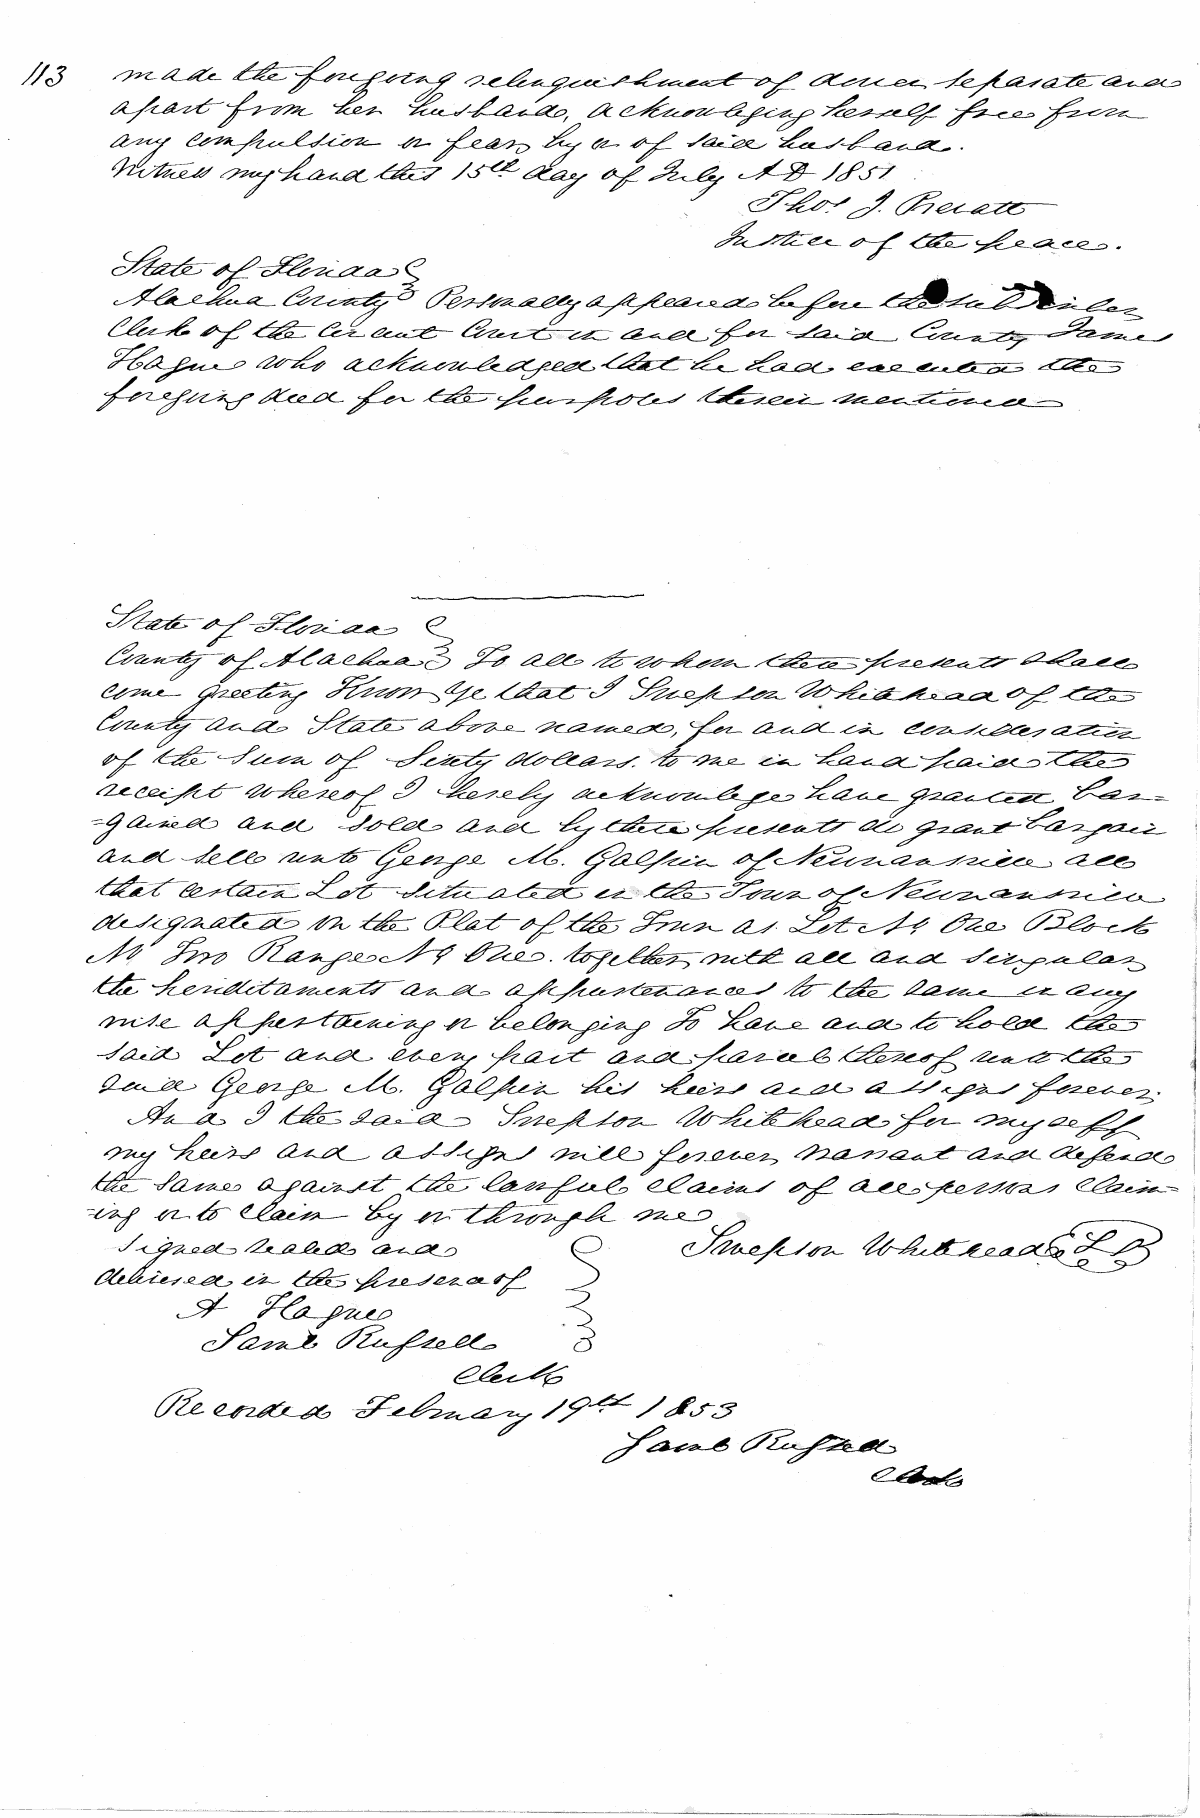 113
made the foregoing relinquishment of dower separate and
apart from her husband, acknowleging herself free from
any compulsion or fear, by or of said husband.
Witness my hand this 15th day of July A D 1851
Thos. J. Prevatt
Justice of the peace.
State of Florida
Alachua County Personally appeared before the subscriber
Clerk of the Circuit Court in and for said County James
Hague who acknowledged that he had executed the
foregoing deed for the purposes therein mentioned
State of Florida
County of Alachua To all to whom these presents shall
come greeting Know Ye that I Swepson Whitehead of the
County and State above named, for and in consideration
of the Sum of Sixty dollars. to me in hand paid the
receipt whereof I hereby acknowlege have granted bar=
=gained and sold and by these presents do grant bargain
and sell unto George M. Galphin of Newnansville all
that certain Lot situated in the Town of Newnansville
designated on the Plat of the Town as Lot No One Block
No Two Range No One. together with all and singular
the heriditaments and appurtenances to the same in any
wise appertaining or belonging To have and to hold the
said Lot and every part and parcel thereof unto the
said George M. Galphin his heirs and assigns forever.
And I the said Swepson Whitehead for myself
my heirs and assigns will forever warrant and defend
the same against the lawful claims of all persons claim=
=ing or to claim by or through me
Signed sealed and Swepson Whitehead L S
delivered in the presence of
A Hague
Saml Russell
Clerk
Recorded February 19th 1853
Saml Russell
Clerk